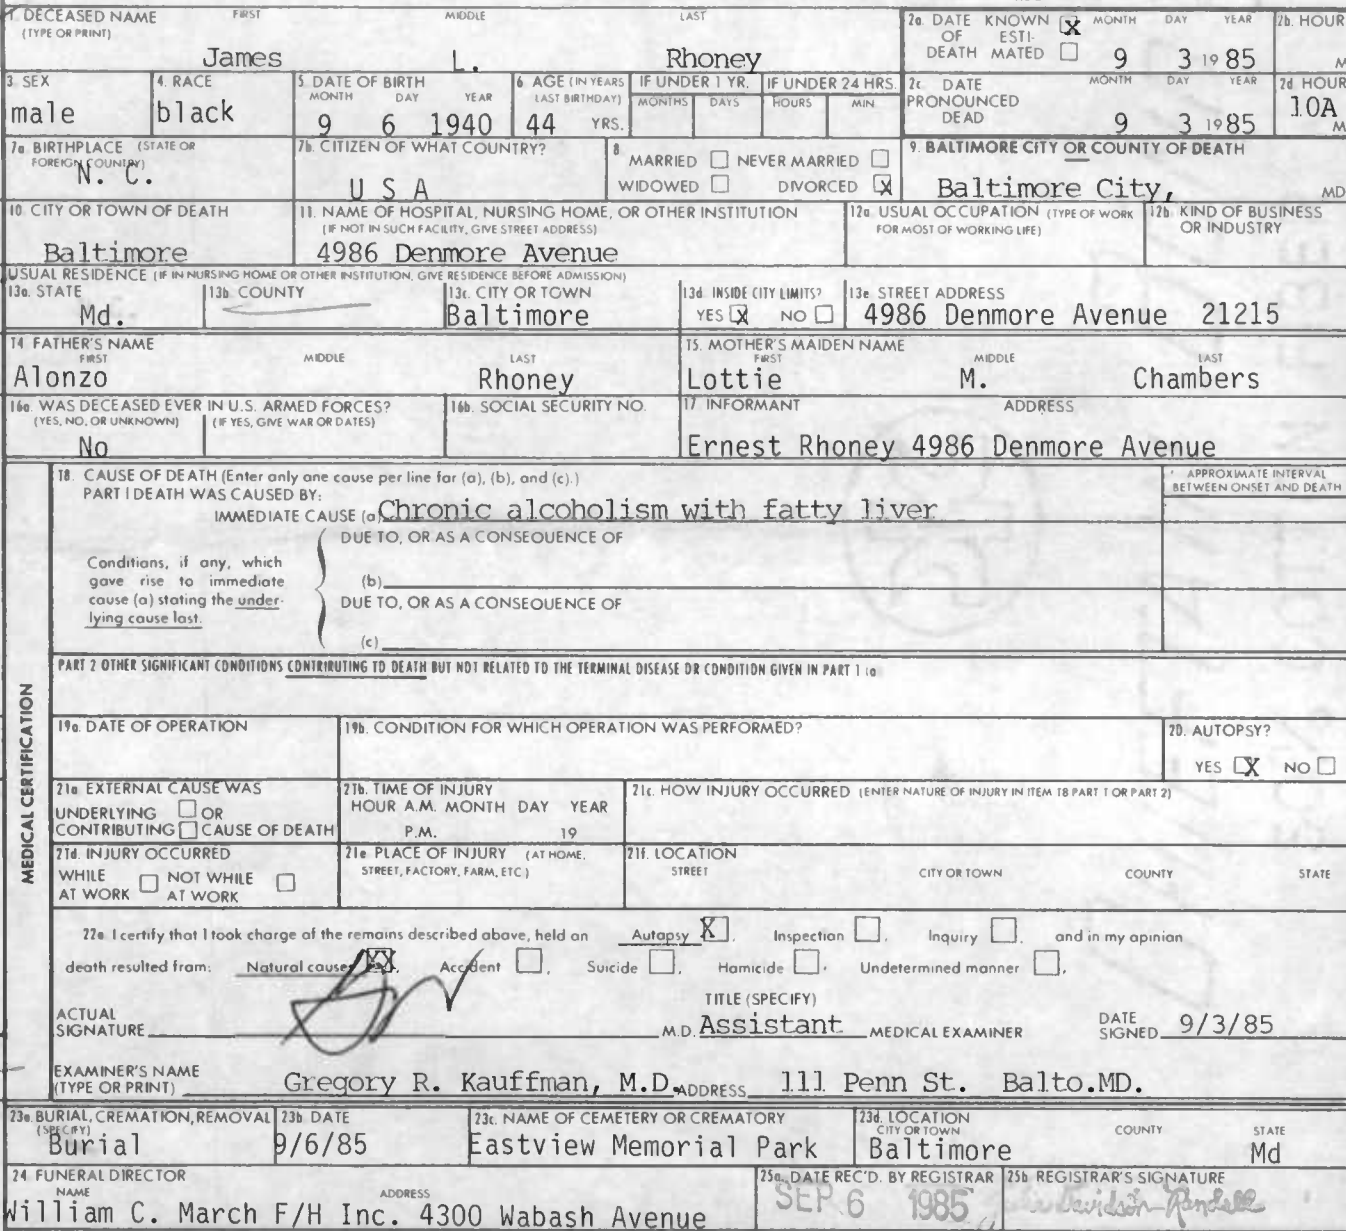 1. DECEASED NAME FIRST MIDDLE LAST
(TYPE OR PRINT)
James L. Rhoney
2a. DATE KNOWN X MONTH DAY YEAR 2b. HOUR
OF ESTI-
DEATH MATED 9 3 1985 M
3. SEX 4. RACE 5. DATE OF BIRTH 6. AGE (IN YEARS IF UNDER 1 YR. IF UNDER 24 HRS.
MONTH DAY YEAR LAST BIRTHDAY) MONTHS DAYS HOURS MIN.
male black 9 6 1940 44 YRS.
2c. DATE MONTH DAY YEAR 2d HOUR
PRONOUNCED
DEAD 9 3 1985 10A M
7a. BIRTHPLACE (STATE OR
FOREIGN COUNTRY)
N. C.
7b. CITIZEN OF WHAT COUNTRY?
U S A
8. MARRIED NEVER MARRIED
WIDOWED DIVORCED X
9. BALTIMORE CITY OR COUNTY OF DEATH
Baltimore City, MD
10. CITY OR TOWN OF DEATH
Baltimore
11. NAME OF HOSPITAL, NURSING HOME, OR OTHER INSTITUTION
(IF NOT IN SUCH FACILITY, GIVE STREET ADDRESS)
4986 Denmore Avenue
12a. USUAL OCCUPATION (TYPE OF WORK
FOR MOST OF WORKING LIFE)
12b. KIND OF BUSINESS
OR INDUSTRY
USUAL RESIDENCE (IF IN NURSING HOME OR OTHER INSTITUTION, GIVE RESIDENCE BEFORE ADMISSION)
13a. STATE 13b. COUNTY 13c. CITY OR TOWN 13d. INSIDE CITY LIMITS? 13e. STREET ADDRESS
Md. Baltimore YES X NO 4986 Denmore Avenue 21215
14. FATHER'S NAME
FIRST MIDDLE LAST
Alonzo Rhoney
15. MOTHER'S MAIDEN NAME
FIRST MIDDLE LAST
Lottie M. Chambers
16a. WAS DECEASED EVER IN U.S. ARMED FORCES?
(YES, NO, OR UNKNOWN) (IF YES, GIVE WAR OR DATES)
No
16b. SOCIAL SECURITY NO.
17. INFORMANT ADDRESS
Ernest Rhoney 4986 Denmore Avenue
MEDICAL CERTIFICATION
18. CAUSE OF DEATH (Enter only one cause per line for (a), (b), and (c).)
PART I DEATH WAS CAUSED BY:
APPROXIMATE INTERVAL
BETWEEN ONSET AND DEATH
IMMEDIATE CAUSE (a) Chronic alcoholism with fatty liver
DUE TO, OR AS A CONSEQUENCE OF
Conditions, if any, which
gave rise to immediate
cause (a) stating the under-
lying cause last.
(b)
DUE TO, OR AS A CONSEQUENCE OF
(c)
PART 2 OTHER SIGNIFICANT CONDITIONS CONTRIBUTING TO DEATH BUT NOT RELATED TO THE TERMINAL DISEASE OR CONDITION GIVEN IN PART 1 (a)
19a. DATE OF OPERATION 19b. CONDITION FOR WHICH OPERATION WAS PERFORMED? 20. AUTOPSY?
YES X NO
21a. EXTERNAL CAUSE WAS
UNDERLYING OR
CONTRIBUTING CAUSE OF DEATH
21b. TIME OF INJURY
HOUR A.M. MONTH DAY YEAR
P.M. 19
21c. HOW INJURY OCCURRED (ENTER NATURE OF INJURY IN ITEM 18 PART 1 OR PART 2)
21d. INJURY OCCURRED
WHILE NOT WHILE
AT WORK AT WORK
21e. PLACE OF INJURY (AT HOME,
STREET, FACTORY, FARM, ETC.)
21f. LOCATION
STREET CITY OR TOWN COUNTY STATE
22a. I certify that I took charge of the remains described above, held an Autopsy X, Inspection, Inquiry, and in my opinion
death resulted from: Natural causes XX, Accident, Suicide, Homicide, Undetermined manner,
ACTUAL
SIGNATURE
TITLE (SPECIFY)
M.D. Assistant MEDICAL EXAMINER
DATE
SIGNED 9/3/85
EXAMINER'S NAME
(TYPE OR PRINT) Gregory R. Kauffman, M.D. ADDRESS 111 Penn St. Balto.MD.
23a. BURIAL, CREMATION, REMOVAL 23b. DATE 23c. NAME OF CEMETERY OR CREMATORY 23d. LOCATION
(SPECIFY) CITY OR TOWN COUNTY STATE
Burial 9/6/85 Eastview Memorial Park Baltimore Md
24. FUNERAL DIRECTOR
NAME ADDRESS
William C. March F/H Inc. 4300 Wabash Avenue
25a. DATE REC'D. BY REGISTRAR
SEP 6 1985
25b. REGISTRAR'S SIGNATURE
Davidson-Randall